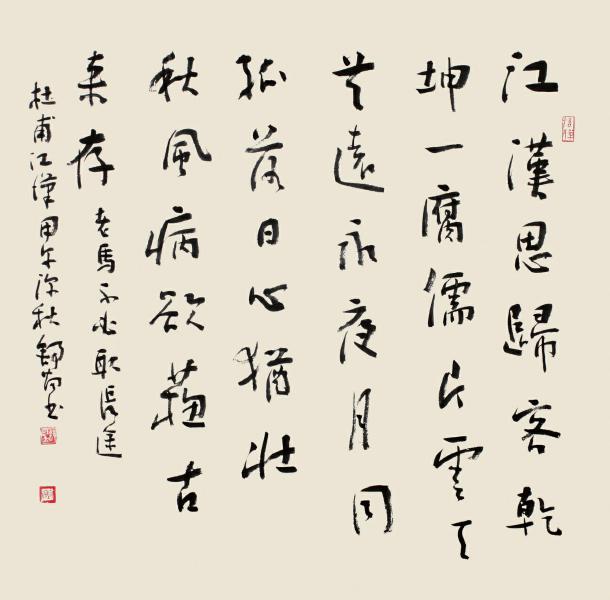 江漢思歸客乾
坤一腐儒片雲天
共遠永夜月同
孤落日心猶壯
秋風病欲蘓古
来存 老馬不必取長途
杜甫江漢甲午深秋书